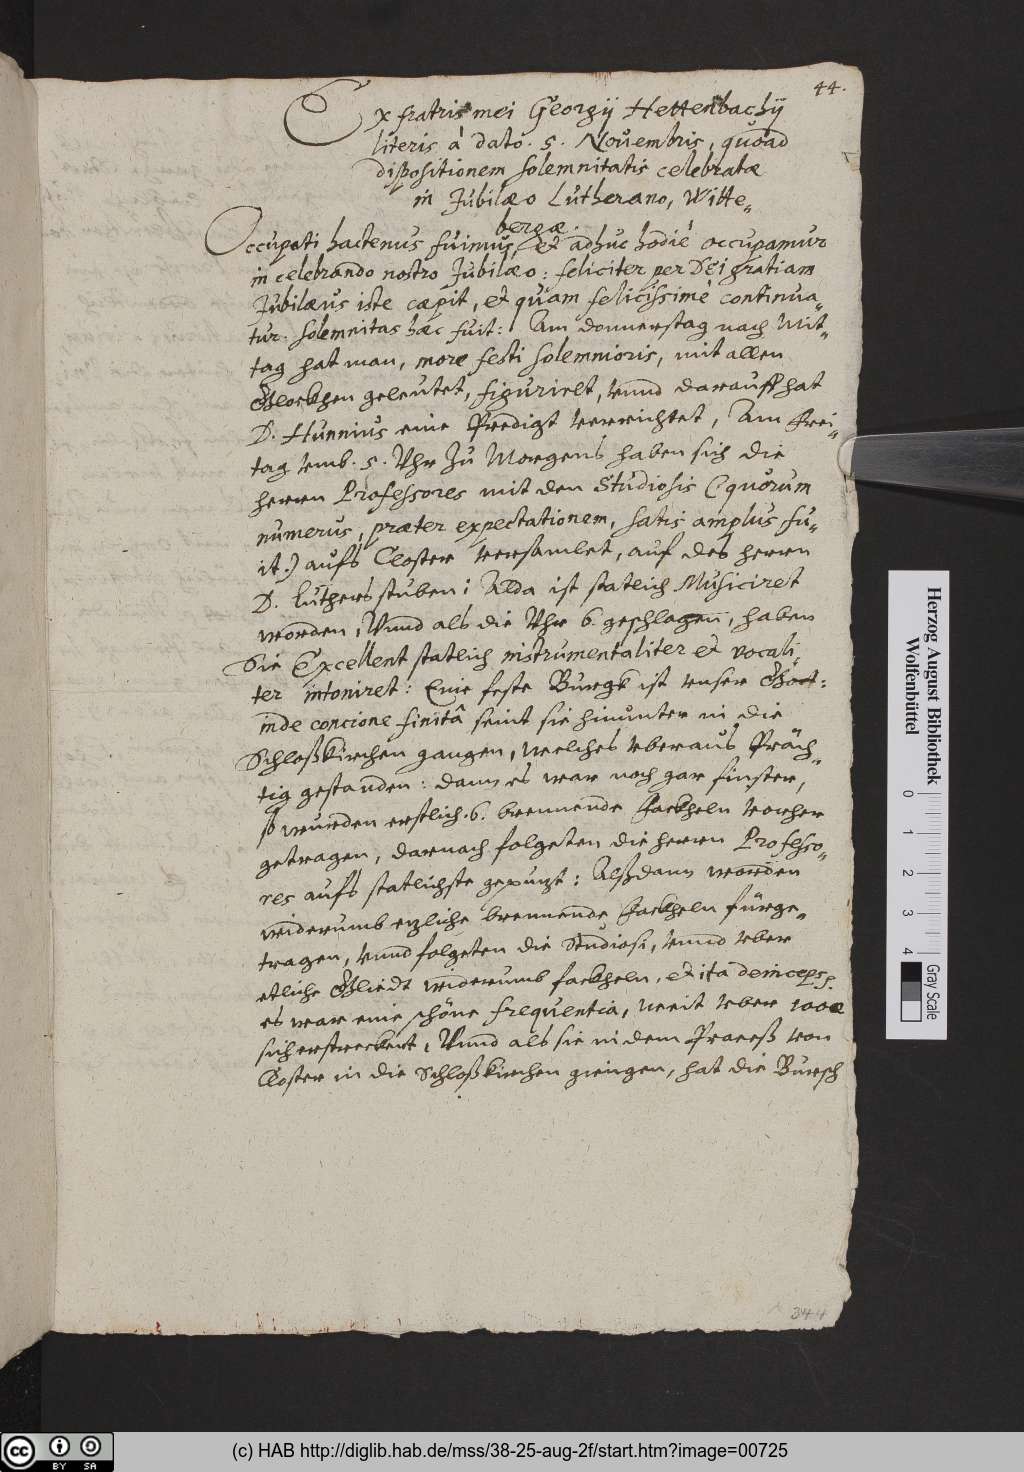 44.
Ex fratris mei Georgij Hettenbachij
literis à dato. 5. Nouembris, quoad
dispositionem solemnitatis celebratæ
in Jubilæo Lutherano, Witte„
bergæ.
Occupati hactenus fuimus, et adhuc hodiè occupamur
in celebrando nostro Jubilæo: feliciter per DEi gratiam
Jubilæus iste cæpit, et quàm felicissimè continua„
tur. Solemnitas hæc fuit: Am donnerstag nach Mit„
tag hat man, more festi solemnioris, mit allen
Glockhen geleutet, figurirt, vnnd darauff hat
D. Hunnius eine Predigt verrichtet, Am Frei„
tag vmb. 5. Vhr zu Morgens haben sich die
herrn Professores mit den Studiosis (quorum
numerus, præter expectationem, satis amplus fu„
it.) aufs Closter versamlet, auf des herrn
D. Luthers stuben: Alda ist statlich Musiciret
worden, Vnnd als die Vhr 6. geschlagen, haben
Sie Excellent statlich instrumentaliter et vocali„
ter intoniret: Eine feste Burgk ist vnser Gott:
inde concione finitâ seint sie hinunter in die
Schloßkirchen gangen, welches vberaus Präch„
tig gestanden: dann es war noch gar finster,
so wurden erstlich. 6. brennende Fackheln vorher
getragen, darnach folgeten die herrn Professo„
res aufs statlichste gepuzt: Alßdann worden
widerumb ezliche brennende Fackheln fürge„
tragen, vnnd folgeten die Studiosi, vnnd vber
etliche Gliedt widerumb fackheln, et ita deinceps.
es war eine schöne frequentia, weit vber 1000
sich erstreckent, Vnnd als sie in dem Proceß von
Closter in die Schloßkirchen giengen, hat die Bursch
344
Herzog August Bibliothek
Wolfenbüttel
0 1 2 3 4
Gray Scale
cc BY SA
(c) HAB http://diglib.hab.de/mss/38-25-aug-2f/start.htm?image=00725